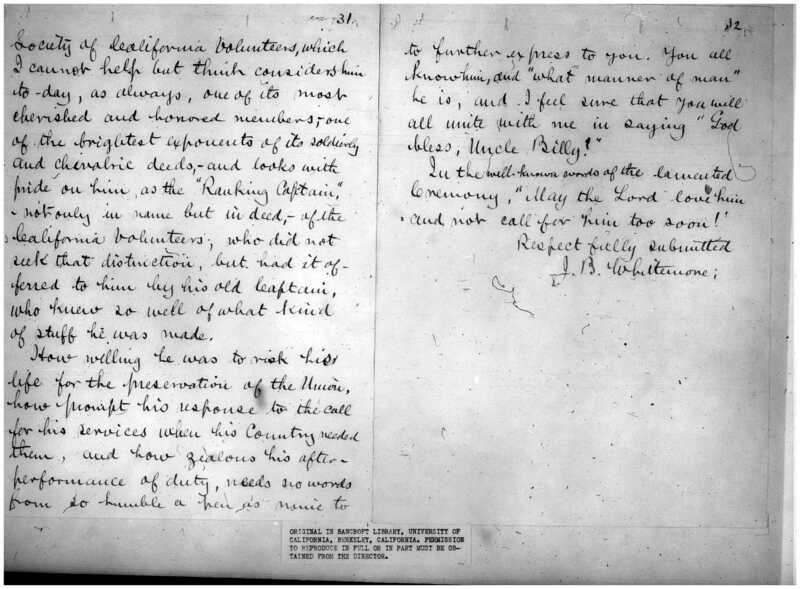 31
Society of California Volunteers, which
I cannot help but think considers him
to-day, as always, one of its most
cherished and honored members; one
of the brightest exponents of its soldierly
and chevalric deeds,- and looks with
pride on him, as the "Ranking Captain",
- not only in name but in deed,- of the
California Volunteers, who did not
seek that distinction, but had it of-
ferred to him by his old Captain,
who knew so well of what kind
of stuff he was made.
How willing he was to risk his
life for the preservation of the Union,
how prompt his response to the call
for his services when his Country needed
them, and how zealous his after-
performance of duty, needs no words
from so humble a pen as mine to
32
to further express to you. You all
know him, and "what manner of man"
he is, and I feel sure that you will
all unite with me in saying "God
bless, Uncle Billy!"
In the well-known words of the lamented
Ceremony, "May the Lord love him
and not call for him too soon!"
Respectfully submitted
J. B. Whittemore;
ORIGINAL IN BANCROFT LIBRARY, UNIVERSITY OF
CALIFORNIA, BERKELEY, CALIFORNIA. PERMISSION
TO REPRODUCE IN FULL OR IN PART MUST BE OB-
TAINED FROM THE DIRECTOR.